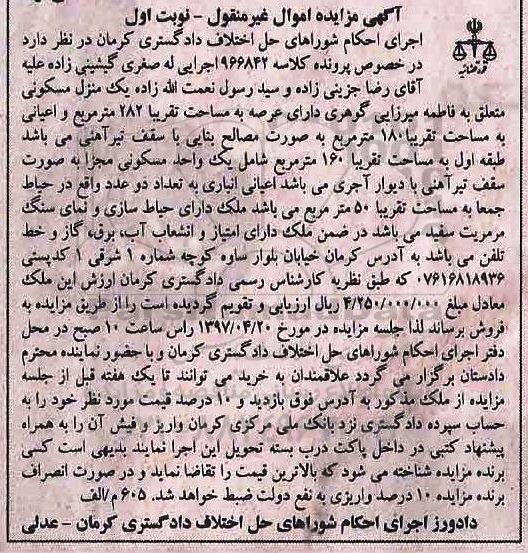 آگهی مزایده اموال غیرمنقول - نوبت اول
اجرای احکام شوراهای حل اختلاف دادگستری کرمان در نظر دارد
در خصوص پرونده کلاسه ۹۶۶۸۴۲اجرایی له صغری گیشینی زاده علیه
آقای رضا جزینی زاده و سید رسول نعمت الله زاده یک منزل مسکونی
متعلق به فاطمه میرزایی گوهری دارای عرصه به مساحت تقریبا ۲۸۲ مترمربع و اعیانی
به مساحت تقریبا۱۸۰ مترمربع به صورت مصالح بنایی با سقف تیرآهنی می باشد
طبقه اول به مساحت تقریبا ۱۶۰ مترمربع شامل یک واحد مسکونی مجزا به صورت
سقف تیرآهنی با دیوار آجری می باشد اعیانی انباری به تعداد دو عدد واقع در حیاط
جمعا به مساحت تقریبا ۵۰ متر مربع می باشد ملک دارای حیاط سازی و نمای سنگ
مرمریت سفید می باشد در ضمن ملک دارای امتیاز و انشعاب آب، برق، گاز و خط
تلفن می باشد به آدرس کرمان خیابان بلوار ساوه کوچه شماره ۱ شرقی ۱ کدپستی
۰۷۶۱۶۸۱۸۹۳۶ که طبق نظریه کارشناس رسمی دادگستری کرمان ارزش این ملک
معادل مبلغ ۴/۲۵۰/۰۰۰/۰۰۰ ریال ارزیابی و تقویم گردیده است را از طریق مزایده به
فروش برساند لذا جلسه مزایده در مورخ ۱۳۹۷/۰۴/۲۰ راس ساعت ۱۰ صبح در محل
دفتر اجرای احکام شوراهای حل اختلاف دادگستری کرمان و با حضور نماینده محترم
دادستان برگزار می گردد علاقمندان به خرید می توانند تا یک هفته قبل از جلسه
مزایده از ملک مذکور به آدرس فوق بازدید و ۱۰ درصد قیمت مورد نظر خود را به
حساب سپرده دادگستری نزد بانک ملی مرکزی کرمان واریز و فیش آن را به همراه
پیشنهاد کتبی در داخل پاکت درب بسته تحویل این اجرا نمایند بدیهی است کسی
برنده مزایده شناخته می شود که بالاترین قیمت را تقاضا نماید و در صورت انصراف
برنده مزایده ۱۰ درصد واریزی به نفع دولت ضبط خواهد شد. ۶۰۵ م/الف
دادورز اجرای احکام شوراهای حل اختلاف دادگستری کرمان - عدلی